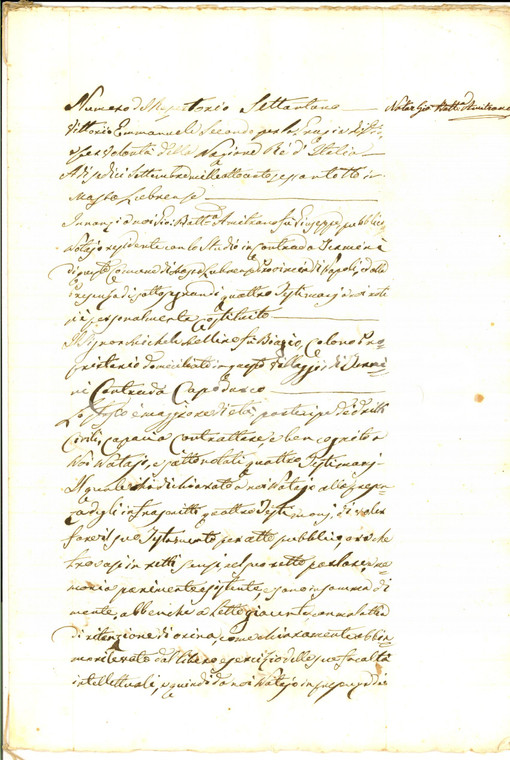 Numero del Repertorio Settantuno
Notar Gio: Batta Amitrano
Vittorio Emmanuele Secondo per la Grazia di Dio
e per volontà della Nazione Rè d'Italia
A dì sedici Settembre mille ottocento sessantotto in
Massa Lubrense
Innanzi a noi Gio: Batta Amitrano fu Giuseppe, pubblico
Notajo residente con lo Studio in Contrada Termini
di questo Comune di Massa Lubrense Provincia di Napoli, ed alla
presenza di sottosegnandi quattro Testimonj a noi noti
si è personalmente costituito
Il Signor Michele Mellino fu Biagio, colono Pro
prietario domiciliato in questo Villaggio di Termi
ni Contrada Capodarco
Lo stesso è maggiore di età, partecipe de' dritti
Civili, capace a contrattare, e ben cognito a
Noi Notajo, e sottonotati quattro Testimonj
Il quale ha dichiarato a noi Notajo alla presen
za degli infrascritti quattro Testimonj, di voler
fare il suo Testamento per atto pubblico, ora che
trovasi in retti sensi, col suo retto parlare, me
moria parimente esistente, e sano in somma di
mente, abbenche a letto giacente, con malattia
di ritenzione di orina, come chiaramente abbia
mo rilevato dal libero esercizio delle sue facoltà
intellettuali, e quindi da noi Notajo in presenza dei